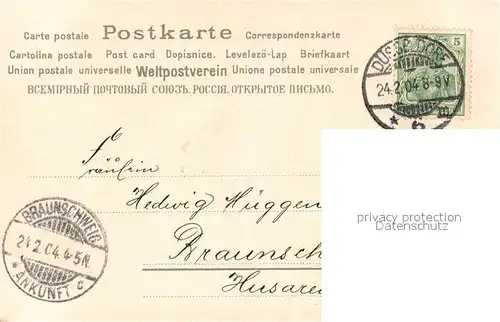 Carte postale Postkarte Correspondenzkarte
Cartolina postale Post card Dopisnice. Levelező-Lap Briefkaart
Union postale universelle Weltpostverein Unione postale universale
ВСЕМІРНЫЙ ПОЧТОВЫЙ СОЮЗЪ. РОССІЯ. ОТКРЫТОЕ ПИСЬМО.
5
DÜSSELDORF
24.2.04.8-9V
* 6
Fräulein
Hedwig Hüggen
Braunsch
Husaren
BRAUNSCHWEIG
24.2.04.4-5N.
* ANKUNFT c
privacy protection
Datenschutz